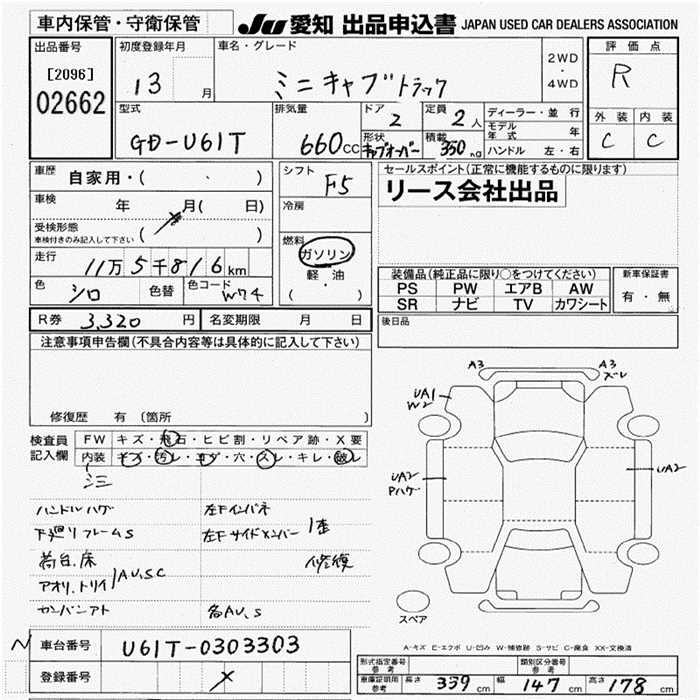 車内保管・守衛保管
JU 愛知 出品申込書 JAPAN USED CAR DEALERS ASSOCIATION
出品番号
[2096]
02662
初度登録年月
13 月
車名・グレード
ミニキャブトラック
2WD
・
4WD
評価点
R
外装 内装
C C
型式
GD-U61T
排気量
660cc
ドア
2
定員
2人
形状
キャブオーバー
積載
350kg
ディーラー・並行
モデル年式 年
ハンドル 左・右
車歴
自家用・( )
車検 年 月( 日)
受検形態
車検付きのみ記入して下さい ( )
走行
11万5千816km
色 シロ 色替 色コード W74
シフト
F5
冷房
燃料
ガソリン
軽・油
( )
セールスポイント(正常に機能するものに限ります)
リース会社出品
装備品(純正品に限り○をつけてください)
PS PW エアB AW
SR ナビ TV カワシート
新車保証書
有・無
R券 3,320円 名変期限 月 日
後日品
注意事項申告欄(不具合内容等は具体的に記入して下さい)
修復歴 有(箇所 )
検査員記入欄
FW キズ・飛石・ヒビ割・リペア跡・X要
内装 キズ・汚レ・コゲ・穴・スレ・キレ・破レ
シミ
ハンドルハゲ
下廻リフレームS
荷台.床
アオリ.トリイ AU,SC
カンバンアト
左Fインパネ
左Fサイドメンバー 1歪
修復
各AU,S
A3
A3
ズレ
UA1
W2
UA2
Pハゲ
UA2
スペア
A-キズ E-エクボ U-凹み W-補修跡 S-サビ C-腐食 XX-交換済
N 車台番号 U61T-0303303
登録番号 X
形式指定番号 参考
類別区分番号 参考
車庫証明用 参考 長さ 339cm 幅 147cm 高さ 178cm